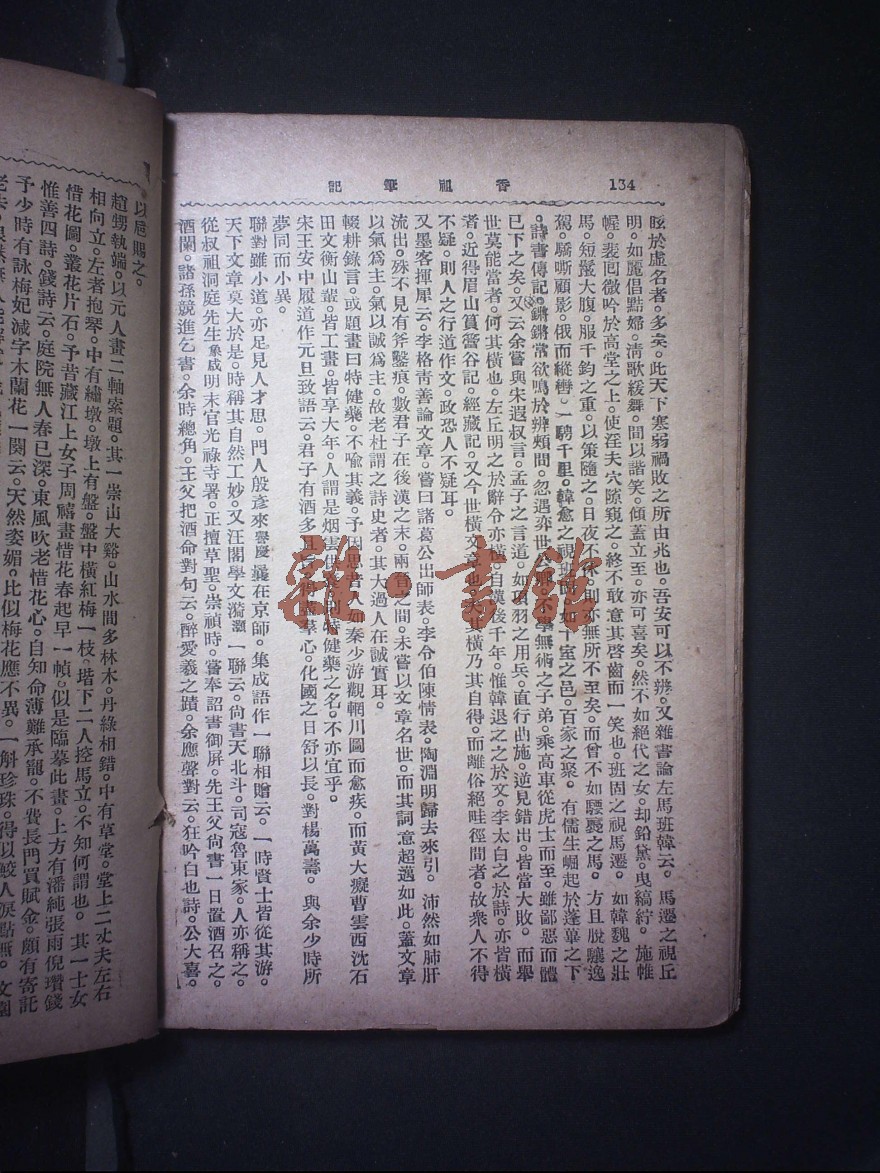 香祖筆記
134
眩於虛名者。多矣。此天下寒弱禍敗之所由兆也。吾安可以不辨。又雜書論左馬班韓云。馬遷之視丘
明。如麗倡黠婦。清歌緩舞。間以諧笑。傾蓋立至。亦可喜矣。然不如絕代之女。却鉛黛。曳縞紵。施帷
幄。裴囘微吟於高堂之上。使淫夫穴隙窺之。終不敢意其啓齒而一笑也。班固之視馬遷。如韓魏之壯
馬。短鬣大腹。服千鈞之重。以策隨之。日夜不休。則亦無所不至矣。而曾不如騕褭之馬。方且脫驤逸
駕。驕嘶顧影。俄而縱轡。一騁千里。韓愈之視班固。如十室之邑。百家之聚。有儒生崛起於蓬蓽之下
。詩書傳記。鏘鏘常欲鳴於辨頰間。忽遇弈世公卿。不學無術之子弟。乘高車從虎士而至。雖鄙惡而體
已下之矣。又云余嘗與宋遐叔言。孟子之言道。如項羽之用兵。直行曲施。逆見錯出。皆當大敗。而舉
世莫能當者。何其橫也。左丘明之於辭令亦橫。自漢後千年。惟韓退之之於文。李太白之於詩。亦皆橫
者。近得眉山篔簹谷記。經藏記。又今世橫文章也。夫其橫乃其自得。而離俗絕畦徑間者。故衆人不得
不疑。則人之行道作文。政恐人不疑耳。
又墨客揮犀云。李格靑善論文章。嘗曰諸葛公出師表。李令伯陳情表。陶淵明歸去來引。沛然如肺肝
流出。殊不見有斧鑿痕。數君子在後漢之末。兩晉之間。未嘗以文章名世。而其詞意超邁如此。蓋文章
以氣爲主。氣以誠爲主。故老杜謂之詩史者。其大過人在誠實耳。
輟耕錄言。或題畫曰特健藥。不喻其義。予因思昔人如秦少游觀輞川圖而愈疾。而黃大癡曹雲西沈石
田文衡山輩。皆工畫。皆享大年。人謂是烟雲供養。則特健藥之名。不亦宜乎。
宋王安中履道作元旦致語云。君子有酒多且旨。得盡羣心。化國之日舒以長。對楊萬壽。與余少時所
夢同而小異。
聯對雖小道。亦足見人才思。門人殷彥來譽慶曩在京師。集成語作一聯相贈云。一時賢士皆從其游。
天下文章莫大於是。時稱其自然工妙。又汪閣學文漪灝一聯云。尙書天北斗。司寇魯東家。人亦稱之。
從叔祖洞庭先生象咸明末官光祿寺署。正擅草聖。崇禎時。嘗奉詔書御屏。先王父尙書一日置酒召之。
酒闌。諸孫競進乞書。余時總角。王父把酒命對句云。醉愛羲之蹟。余應聲對云。狂吟白也詩。公大喜。
以扈賜之。
趙甥執端。以元人畫二軸索題。其一崇山大谿。山水間多林木。丹綠相錯。中有草堂。堂上二丈夫左右
相向立。左者抱琴。中有繡墩。墩上有盤。盤中橫紅梅一枝。堦下二人控馬立。不知何謂也。其一士女
惜花圖。叢花片石。予昔藏江上女子周禧畫惜花春起早一幀。似是臨摹此畫。上方有潘純張雨倪瓚錢
惟善四詩。錢詩云。庭院無人春已深。東風吹老惜花心。自知命薄難承寵。不費長門買賦金。頗有寄託
予少時有詠梅妃減字木蘭花一闋云。天然姿媚。比似梅花應不異。一斛珍珠。得似鮫人淚點無。文園
雜·書館